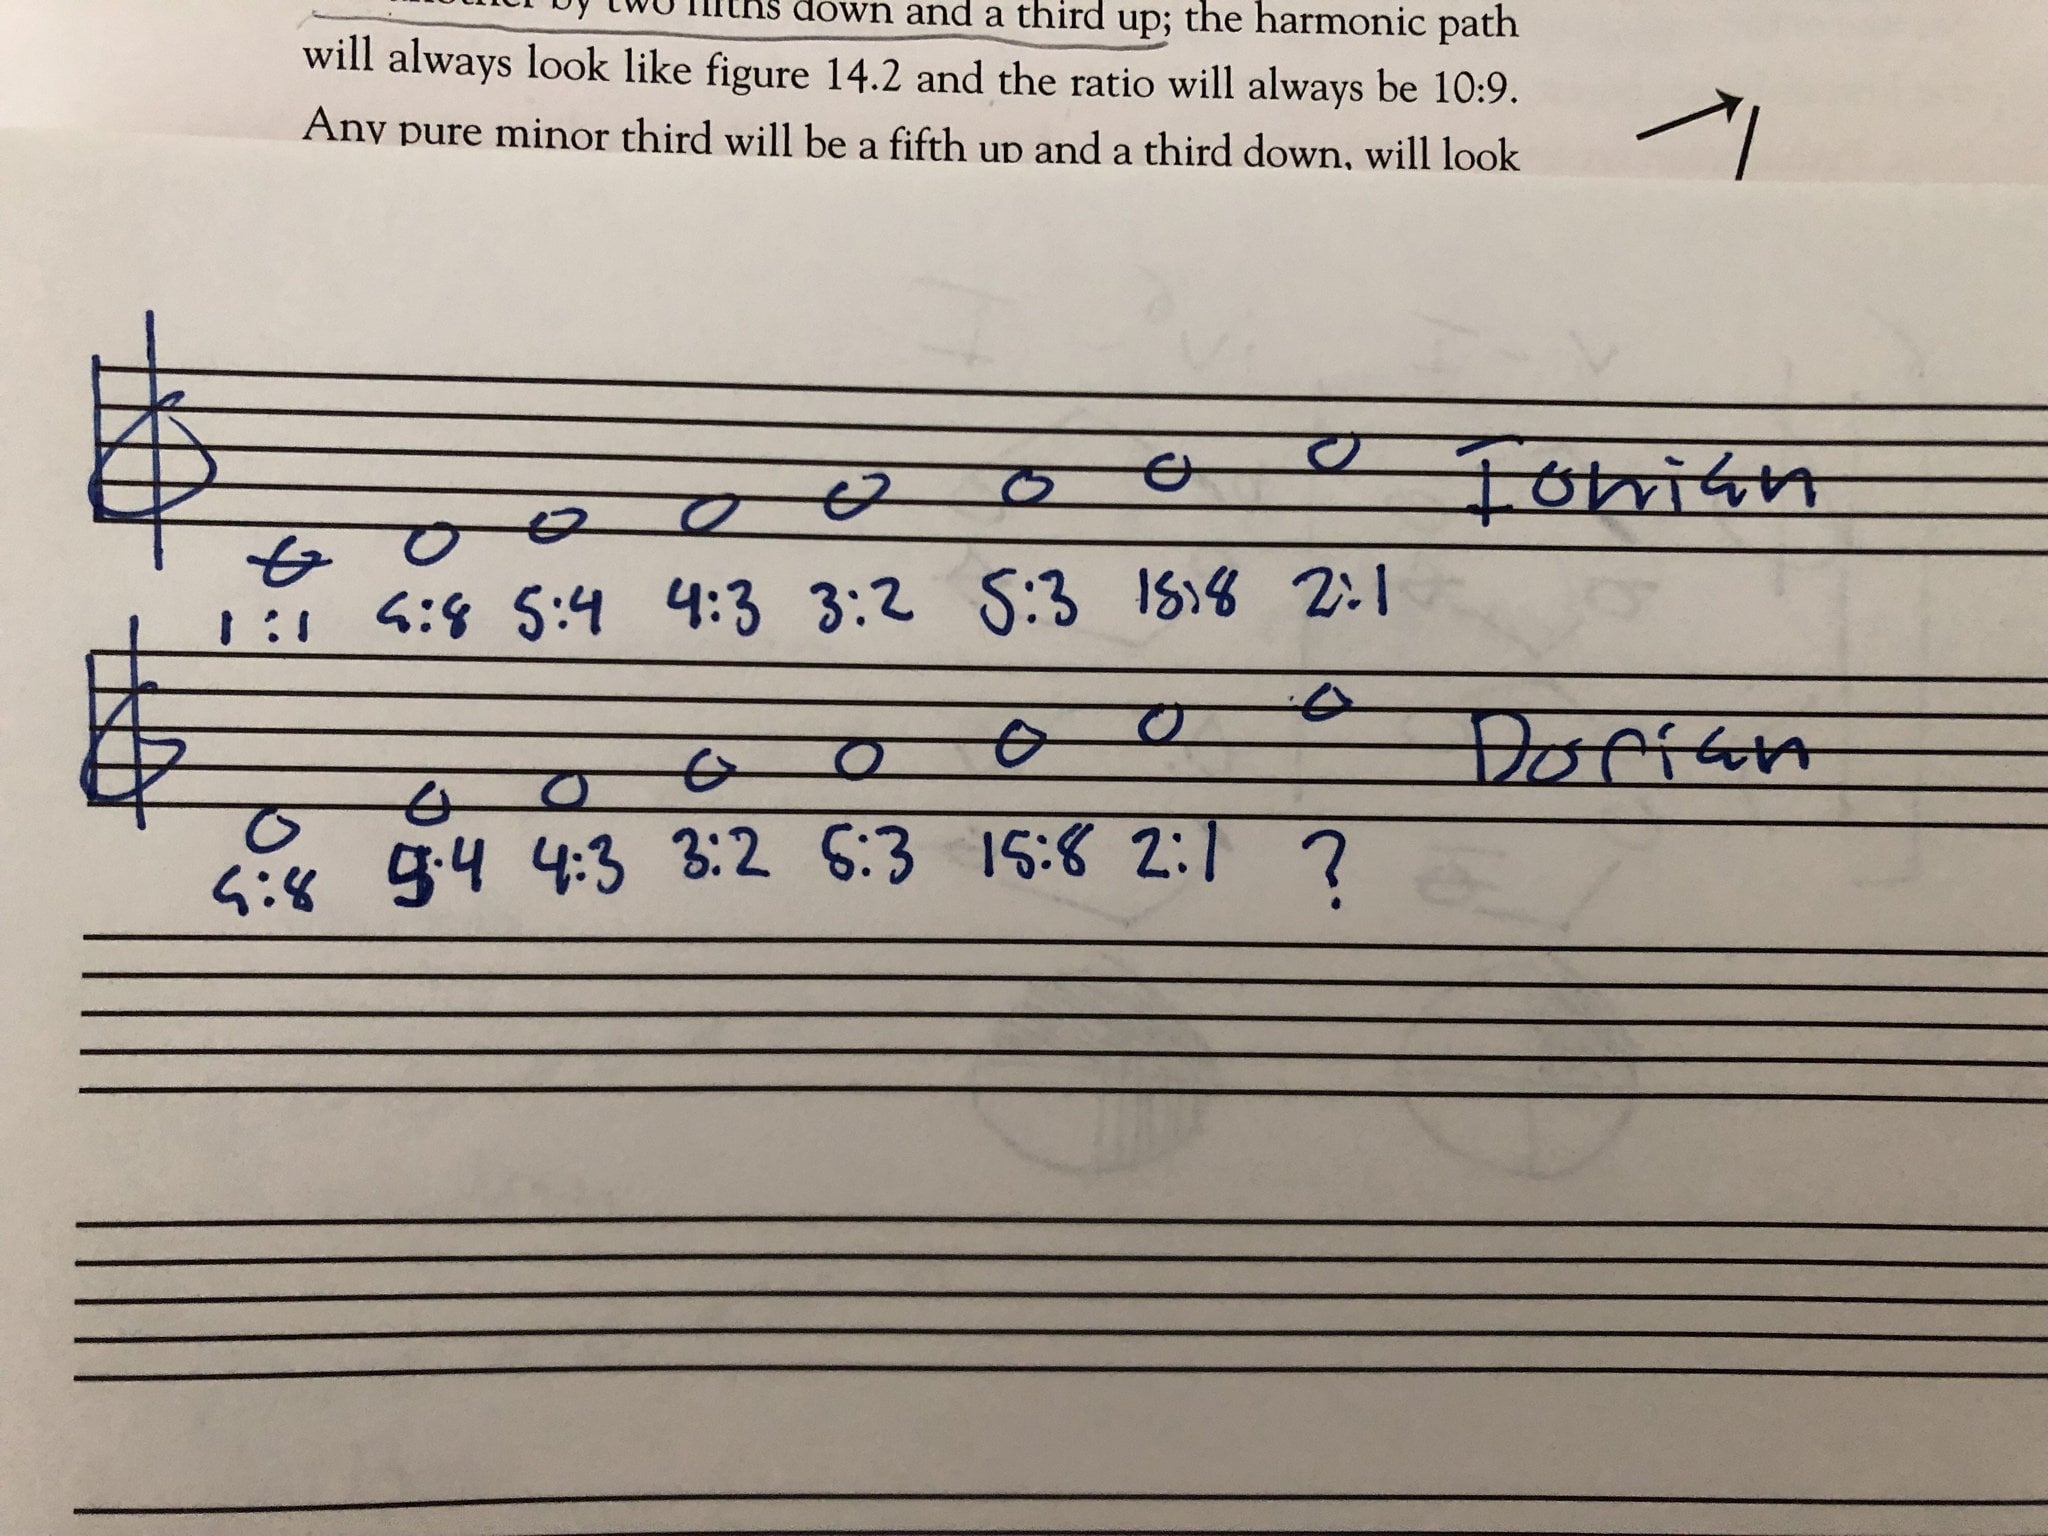 another by two fifths down and a third up; the harmonic path
will always look like figure 14.2 and the ratio will always be 10:9.
Any pure minor third will be a fifth up and a third down, will look
Ionian
1:1 9:8 5:4 4:3 3:2 5:3 15:8 2:1
Dorian
9:8 5:4 4:3 3:2 5:3 15:8 2:1 ?